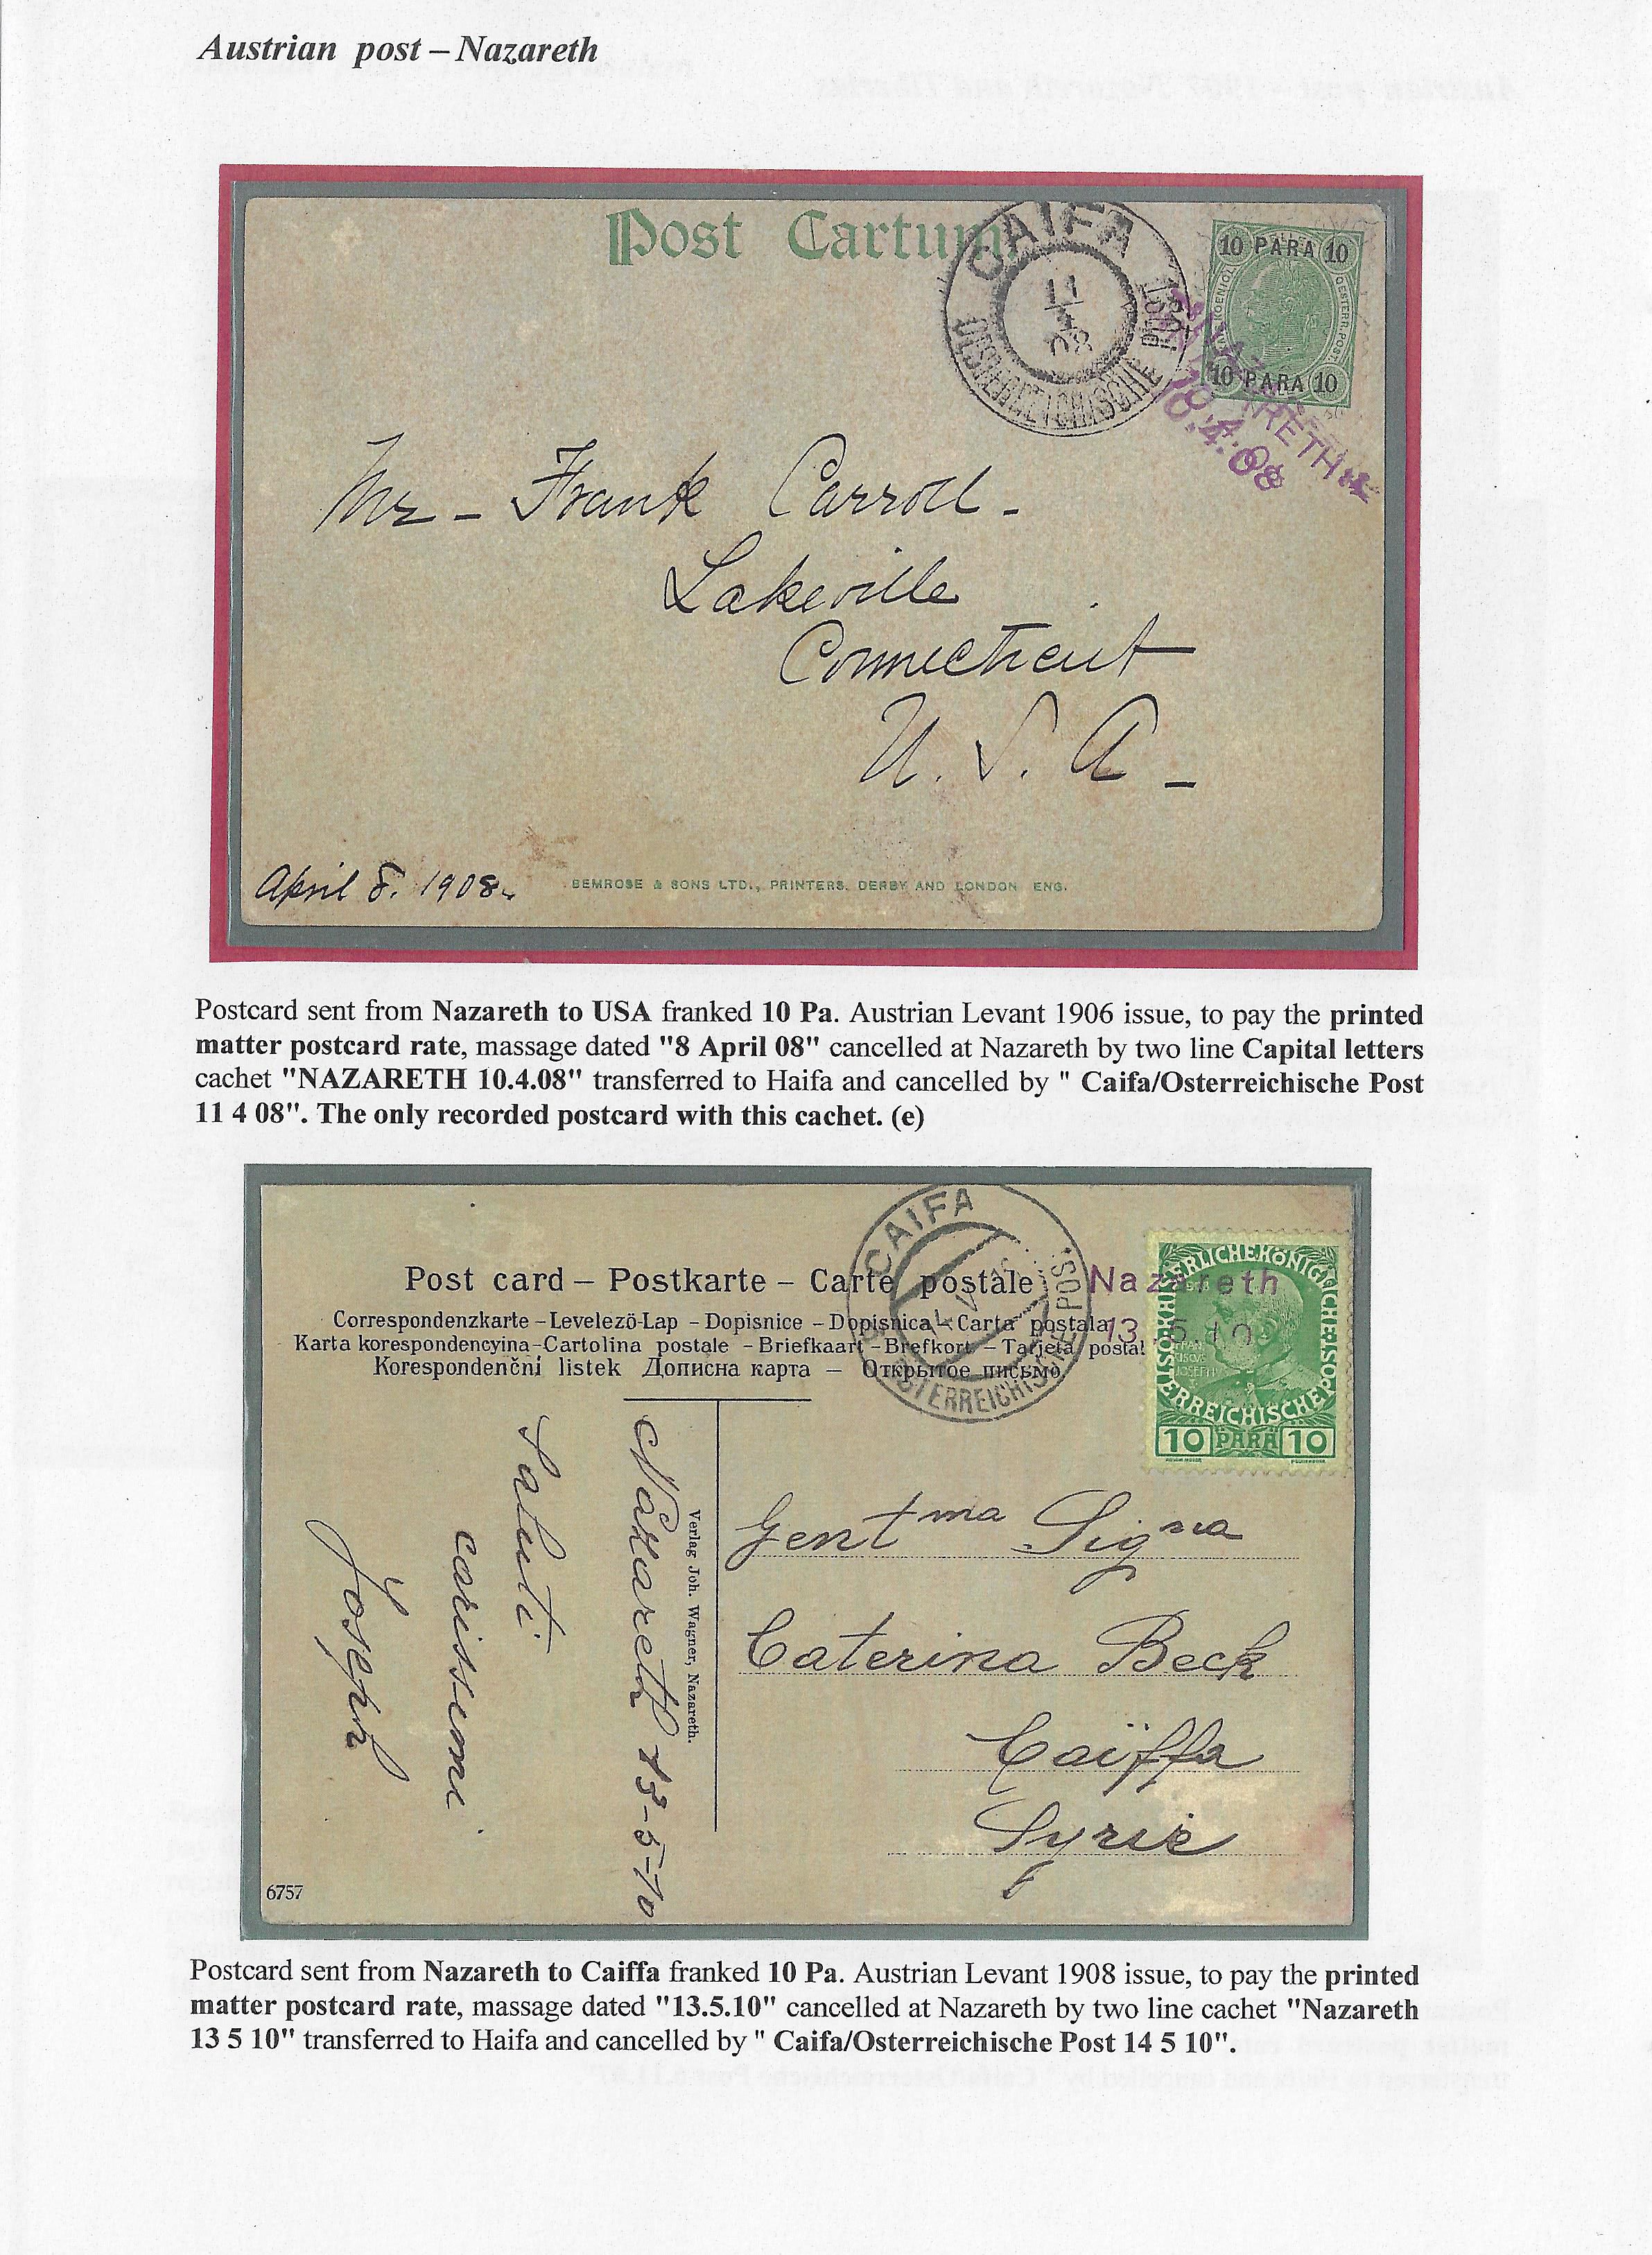 Austrian post – Nazareth
Post Cartum
CAIFA
11
4
08
OESTERREICHISCHE POST
10 PARA 10
10 PARA 10
NAZARETH
10.4.08
Mr - Frank Carroll -
Lakeville
Connecticut
U. S. A -
April 8. 1908.
BEMROSE & SONS LTD., PRINTERS. DERBY AND LONDON ENG.
Postcard sent from Nazareth to USA franked 10 Pa. Austrian Levant 1906 issue, to pay the printed
matter postcard rate, massage dated "8 April 08" cancelled at Nazareth by two line Capital letters
cachet "NAZARETH 10.4.08" transferred to Haifa and cancelled by " Caifa/Osterreichische Post
11 4 08". The only recorded postcard with this cachet. (e)
CAIFA
OESTERREICHISCHE POST
Post card – Postkarte – Carte postale
Nazareth
13.5.10
Correspondenzkarte – Levelező-Lap – Dopisnice – Dopisnica – Carta postala
Karta korespondencyina – Cartolina postale – Briefkaart – Brefkort – Tarjeta postal
Korespondenční listek Дописна карта — Открытое письмо
10 PARA 10
Gentma Signa
Caterina Beck
Caïffa
Syrie
Verlag Joh. Wagner, Nazareth.
Nazareth 13-5-10
Saluti
carissimi
Joseph
6757
Postcard sent from Nazareth to Caiffa franked 10 Pa. Austrian Levant 1908 issue, to pay the printed
matter postcard rate, massage dated "13.5.10" cancelled at Nazareth by two line cachet "Nazareth
13 5 10" transferred to Haifa and cancelled by " Caifa/Osterreichische Post 14 5 10".